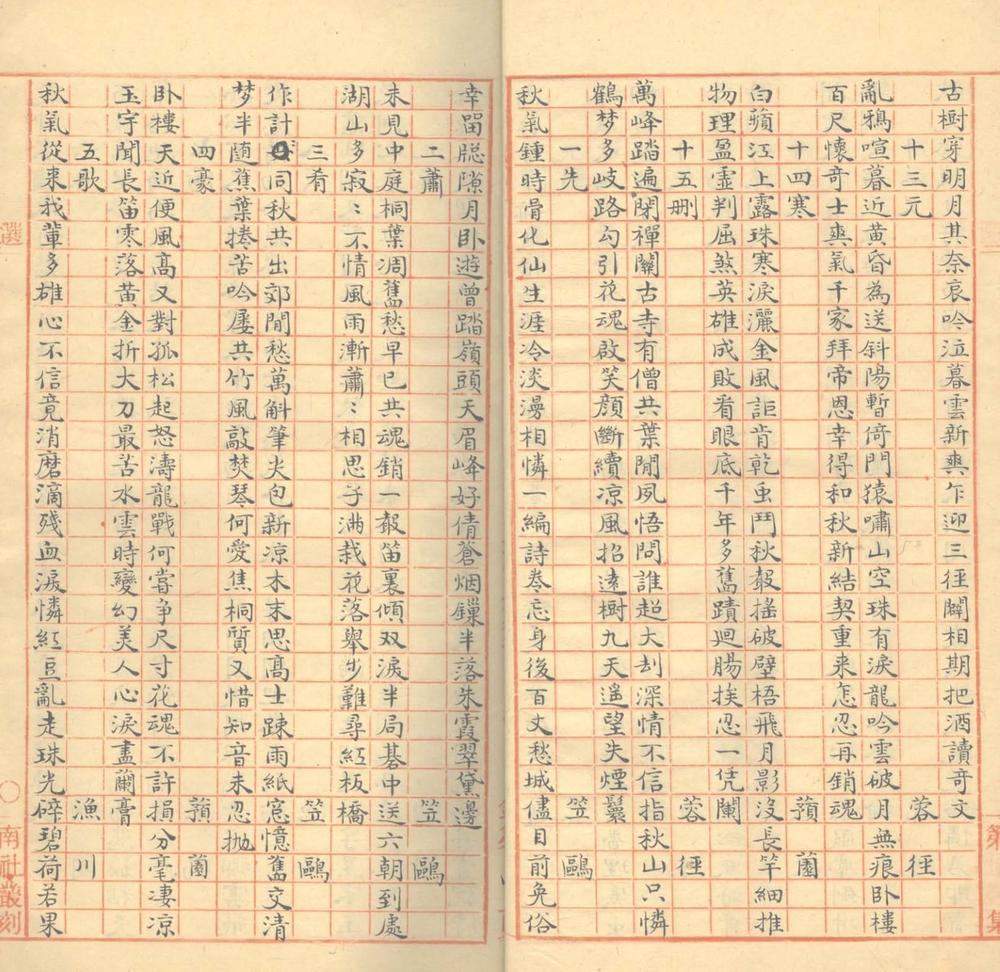 古樹穿明月其奈哀吟泣暮雲新爽乍迎三徑闢相期把酒讀奇文
十三元 蓉徑
亂鴉喧暮近黃昏為送斜陽暫倚門猿嘯山空珠有淚龍吟雲破月無痕臥樓
百尺懷奇士爽氣千家拜帝恩幸得和秋新結契重來怎忍再銷魂
十四寒 蘋蘭
白蘋江上露珠寒淚灑金風詎肯乾虫鬥秋聲搖破壁梧飛月影沒長竿細推
物理盈虛判屈煞英雄成敗看眼底千年多舊蹟迴腸挨忍一凭闌
十五刪 蓉徑
萬峰踏遍閉禪關古寺有僧共葉閒夙悟問誰超大刦深情不信指秋山只憐
鶴梦多岐路勾引花魂啟笑顏斷續凉風招遠樹九天遥望失煙鬟
一先 笠鷗
秋氣鍾時骨化仙生涯冷淡漫相憐一編詩卷忘身後百丈愁城儘目前免俗
幸留牕隙月臥遊曾踏嶺頭天眉峰好倩蒼烟鏁半落朱霞翠黛邊
二蕭 笠鷗
未見中庭桐葉凋舊愁早已共魂銷一聲笛裏傾双淚半局棊中送六朝到處
湖山多寂〻不情風雨漸蕭〻相思子滿栽花落舉步難尋紅板橋
三肴 笠鷗
作計同秋共出郊閒愁萬斛筆尖包新凉木末思高士踈雨紙窓憶舊交清
梦半随蕉葉捲苦吟屡共竹風敲焚琴何愛焦桐質又惜知音未忍抛
四豪 蘋蘭
臥樓天近便風高又對孤松起怒濤龍戰何嘗争尺寸花魂不許損分毫凄凉
玉宇聞長笛零落黃金折大刀最苦水雲時變幻美人心淚盡蘭膏
五歌 漁川
秋氣從來我輩多雄心不信竟消磨滴殘血淚憐紅豆亂走珠光碎碧荷若果
選
南社叢刻
第
集